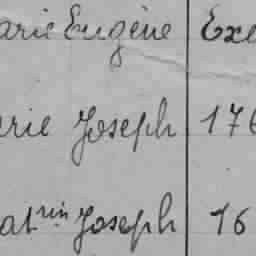 arie Eugène Exe
erie Joseph 176
at rin Joseph 16